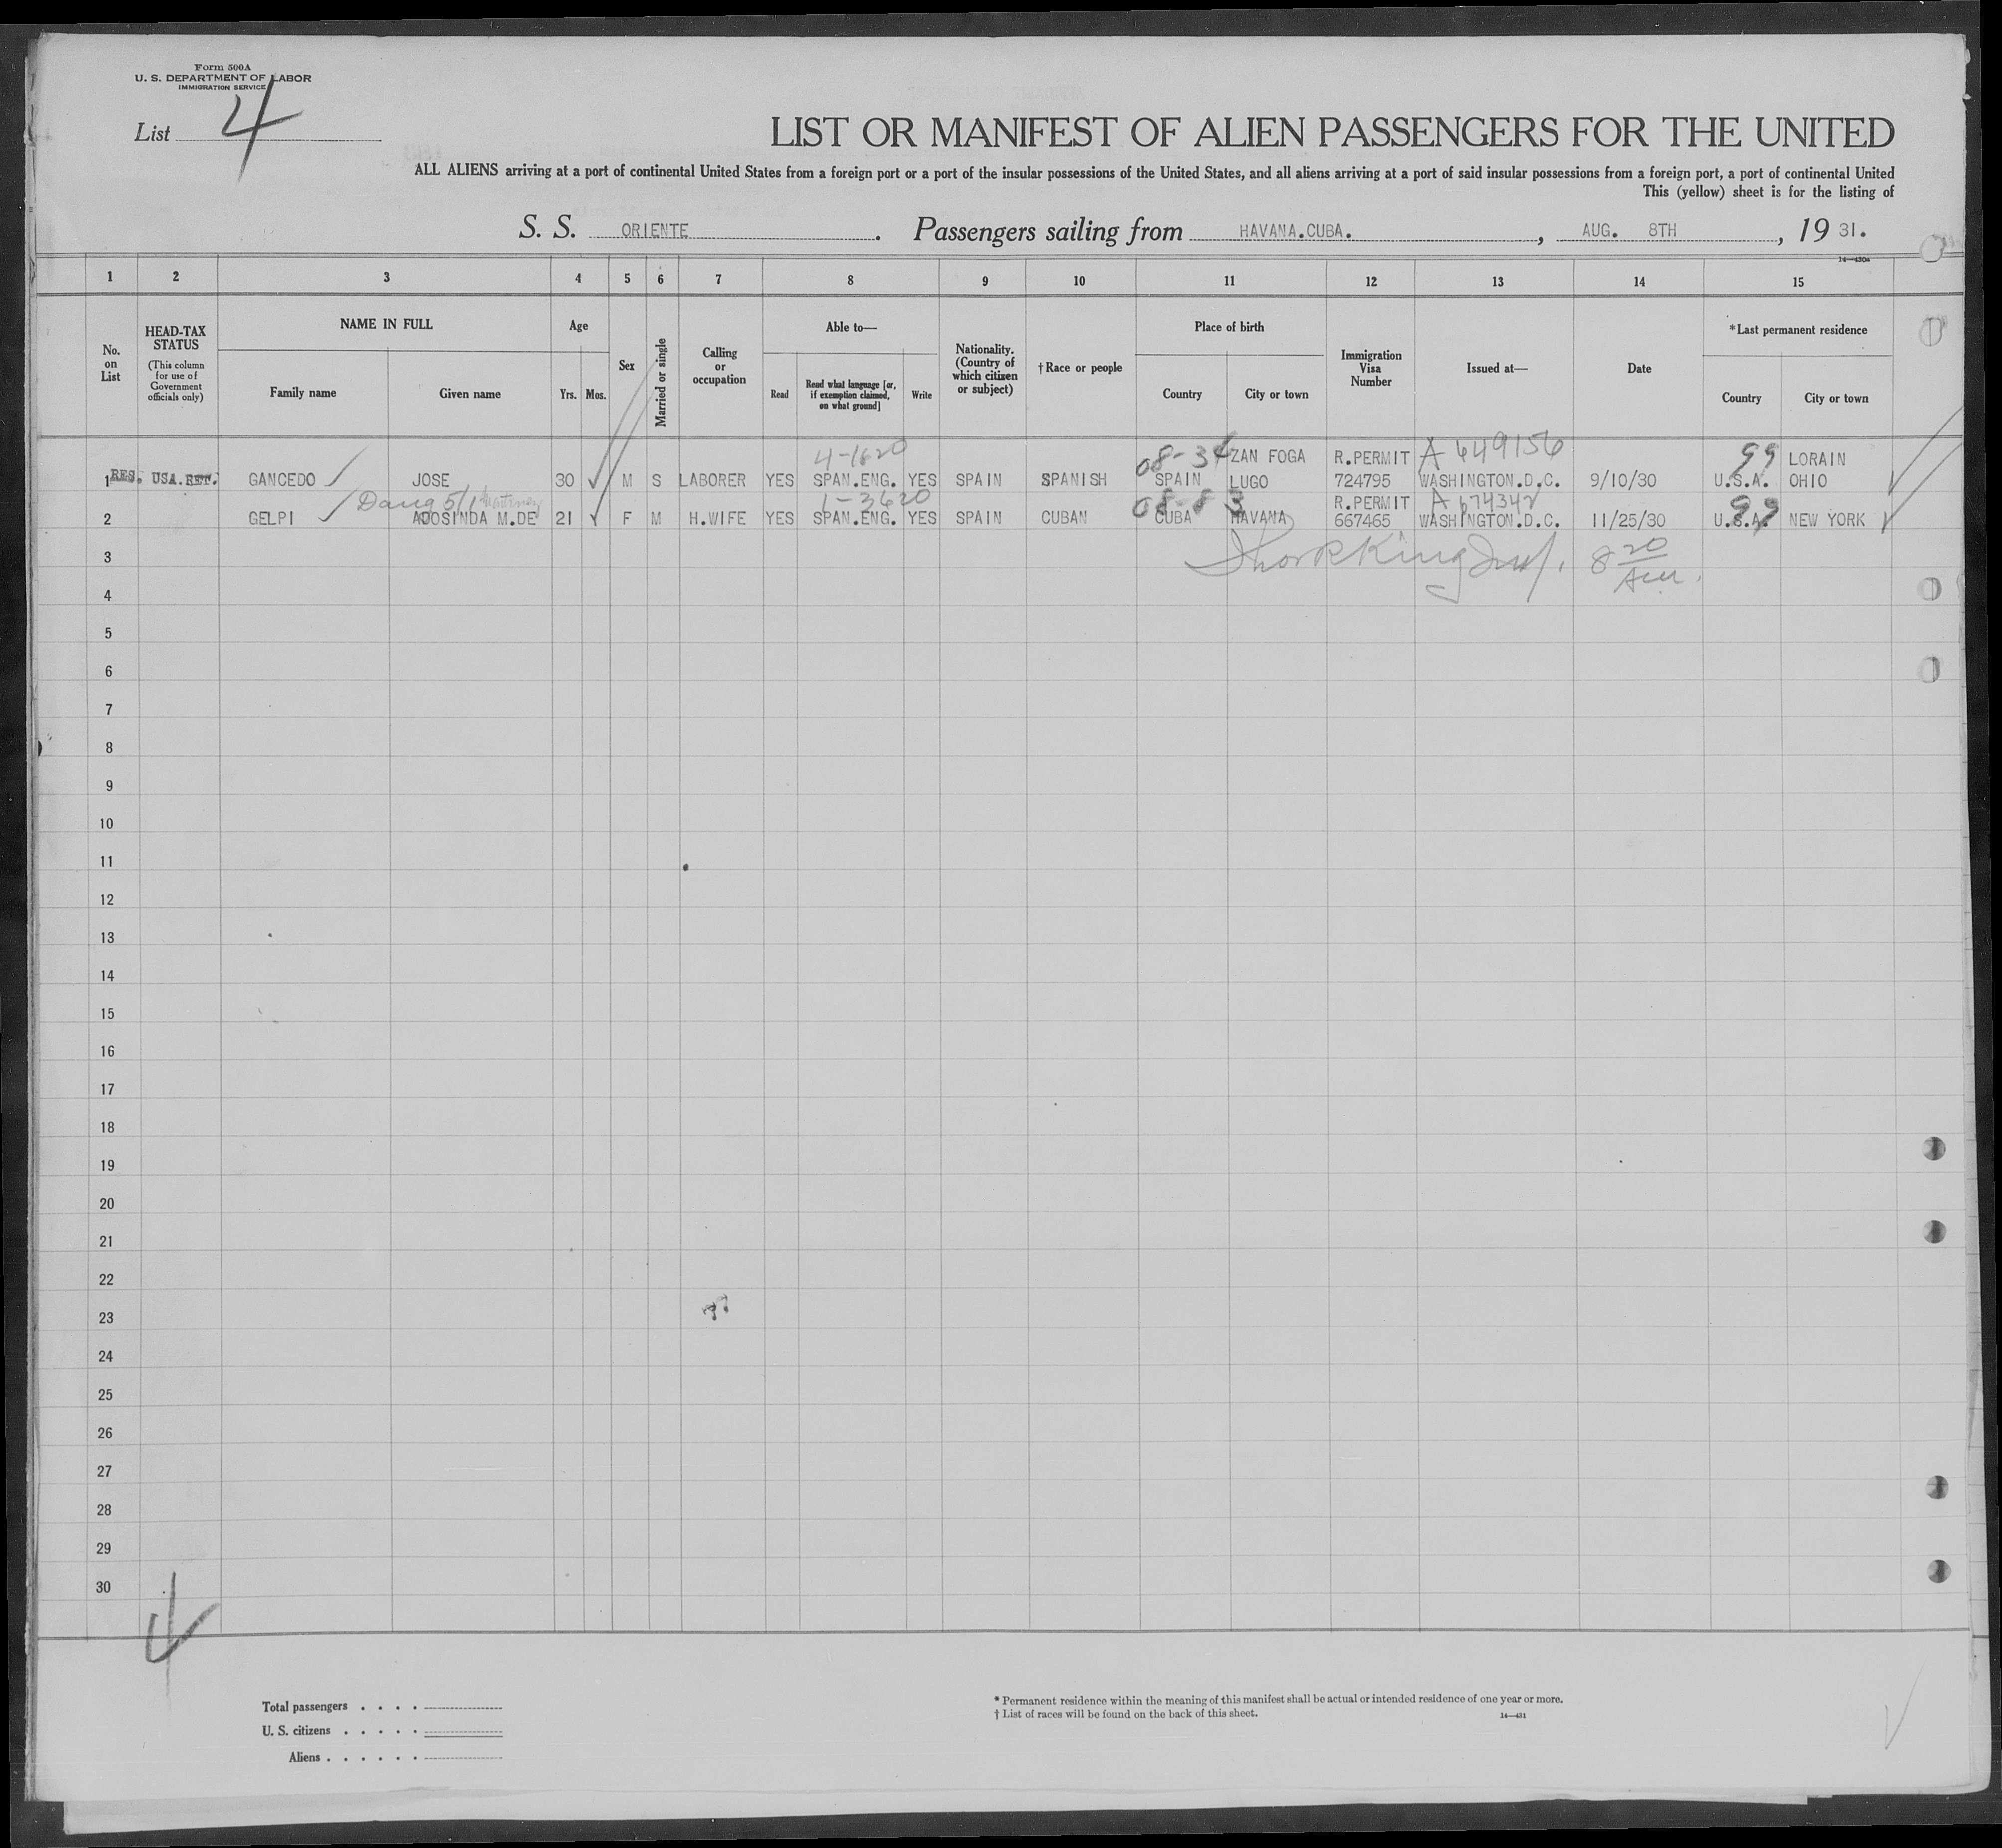 Form 500A
U. S. DEPARTMENT OF LABOR
IMMIGRATION SERVICE
List 4
LIST OR MANIFEST OF ALIEN PASSENGERS FOR THE UNITED
ALL ALIENS arriving at a port of continental United States from a foreign port or a port of the insular possessions of the United States, and all aliens arriving at a port of said insular possessions from a foreign port, a port of continental United
This (yellow) sheet is for the listing of
S. S. ORIENTE. Passengers sailing from HAVANA.CUBA., AUG. 8TH, 19 31.
14—430a
1 2 3 4 5 6 7 8 9 10 11 12 13 14 15
No. on List
HEAD-TAX STATUS
(This column for use of Government officials only)
NAME IN FULL
Family name
Given name
Age
Yrs. Mos.
Sex
Married or single
Calling or occupation
Able to—
Read
Read what language [or, if exemption claimed, on what ground]
Write
Nationality. (Country of which citizen or subject)
† Race or people
Place of birth
Country
City or town
Immigration Visa Number
Issued at—
Date
*Last permanent residence
Country
City or town
4-1620 08-34 ZAN FOGA R.PERMIT A 449156 99 LORAIN
1 RES. USA.RET. GANCEDO JOSE 30 M S LABORER YES SPAN.ENG. YES SPAIN SPANISH SPAIN LUGO 724795 WASHINGTON.D.C. 9/10/30 U.S.A. OHIO
1-3620 08-83 R.PERMIT A 674342 99
2 GELPI ADOSINDA M.DE 21 F M H.WIFE YES SPAN.ENG. YES SPAIN CUBAN CUBA HAVANA 667465 WASHINGTON.D.C. 11/25/30 U.S.A. NEW YORK
3 8 20
4
5
6
7
8
9
10
11
12
13
14
15
16
17
18
19
20
21
22
23
24
25
26
27
28
29
30
Total passengers . . . .
U. S. citizens . . . . .
Aliens . . . . . .
* Permanent residence within the meaning of this manifest shall be actual or intended residence of one year or more.
† List of races will be found on the back of this sheet.
14—431